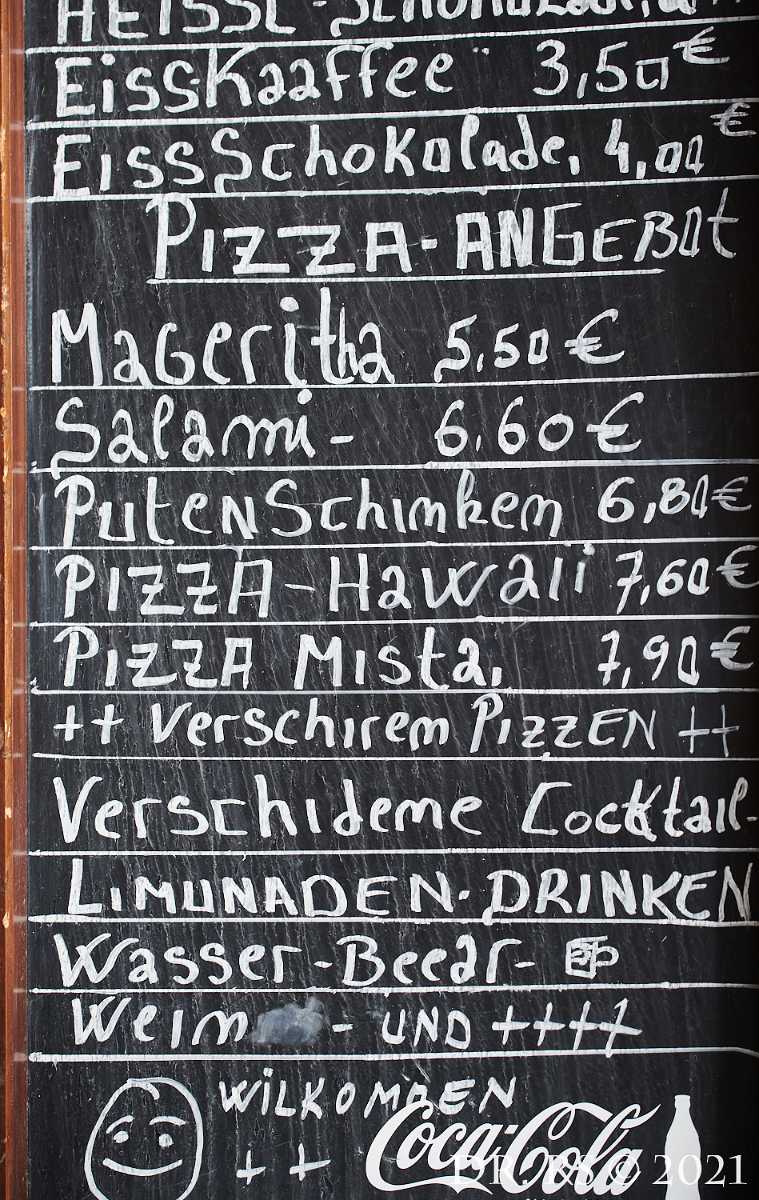 HEISSE-SCHOKOLADE,
EissKaaffee 3,50€
EissSchokolade, 4,00€
PIZZA-ANGEBOt
MaGeritha 5,50€
Salami- 6,60€
PuteNSchinkem 6,80€
PIZZA-Hawaii 7,60€
PIZZA Mista, 7,90€
++ Verschirem PIZZEN ++
Verschideme Cocktail-
LIMUNADEN-DRINKEN
Wasser-Beear-
Weim - UND ++++
WILKOMMEN
++
Coca-Cola
© 2021